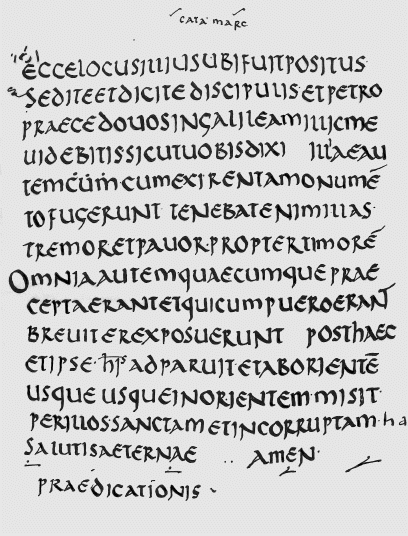 cata marc
ECCELOCUSILLIUSUBIFUITPOSITUS·
SEDITEETDICITEDISCIPULISETPETRO
PRAECEDOUOSINGALILEAMILLICME
UIDEBITISSICUTUOBISDIXI ILLAEAU
TEMCŪŪM·CUMEXIRENTAMONUMĒ
TOFUGERUNT TENEBATENIMILLAS·
TREMORETPAUOR·PROPTERTIMORĒ
OMNIAAUTEMQUAECUMQUEPRAE
CEPTAERANTETQUICUMPUEROERANT
BREUITEREXPOSUERUNT POSTHAEC
ETIPSE·h̅i̅s̅ ADPARUITETABORIENTĒ
USQUE USQUEINORIENTEM·MISIT·
PERILLOSSANCTAMETINCORRUPTAM·ha
SALUTISAETERNAE ·· AMEN·
PRAEDICATIONIS